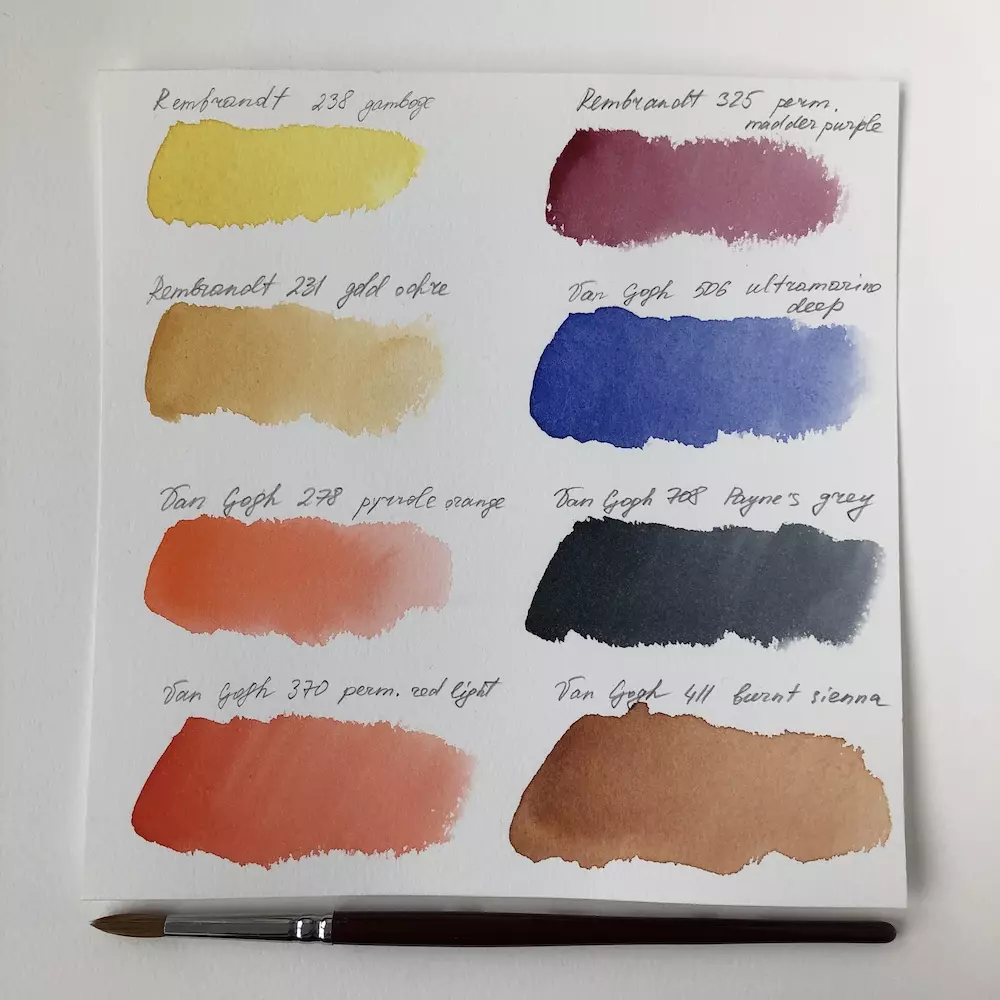 Rembrandt 238 gamboge
Rembrandt 325 perm.
madder purple
Rembrandt 231 gold ochre
Van Gogh 506 ultramarine
deep
Van Gogh 278 pyrrole orange
Van Gogh 708 Payne's grey
Van Gogh 370 perm. red light
Van Gogh 411 burnt sienna